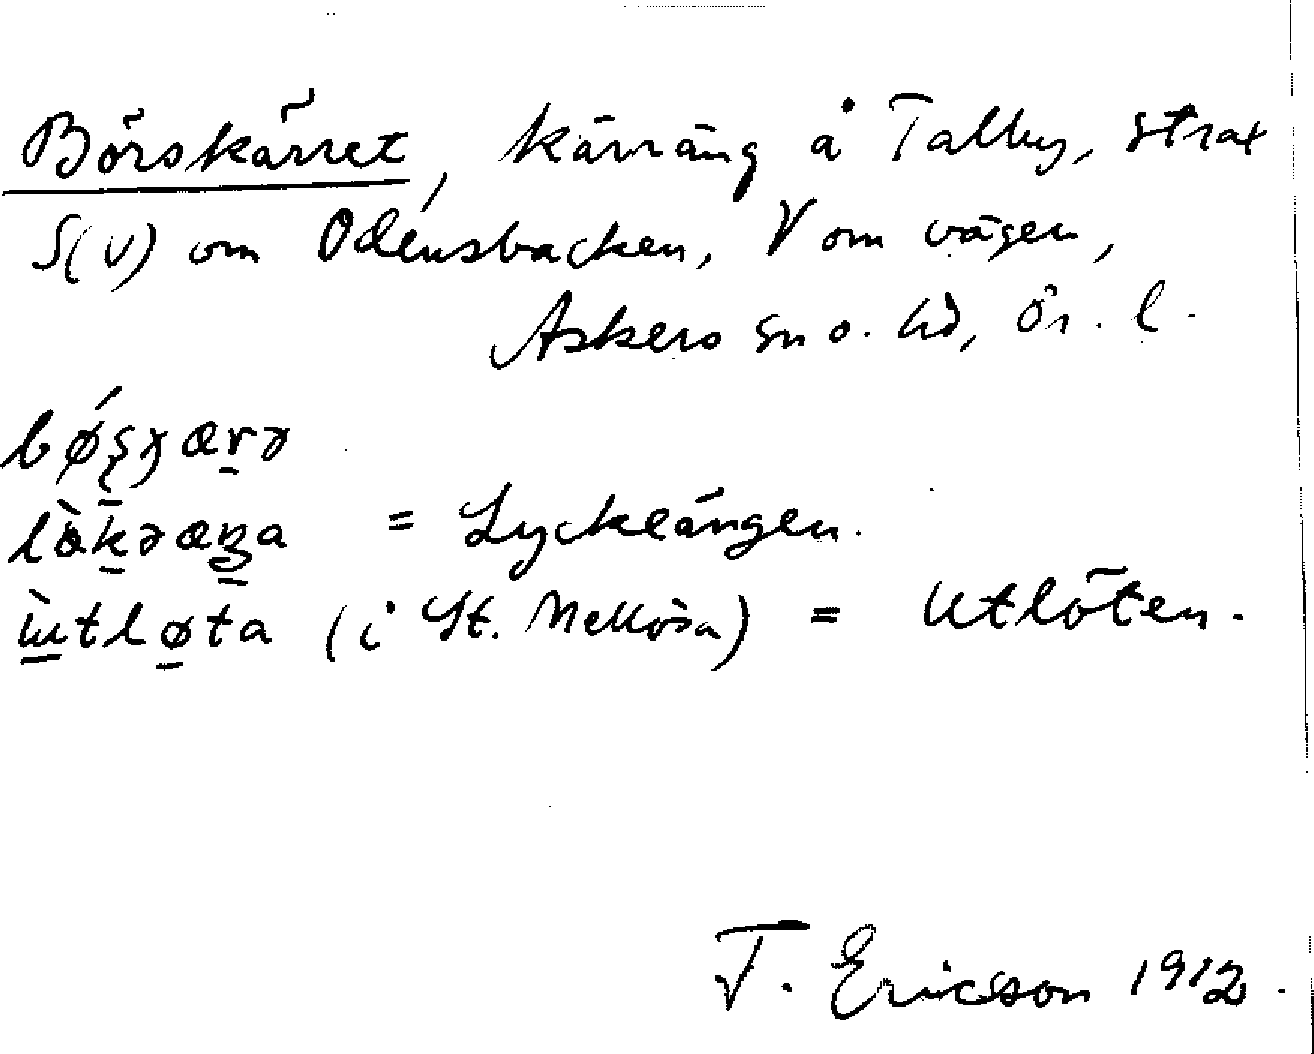 Börskärret, kärräng å Talby, strax
S(V) om Odensbacken, V om vägen,
Askers sn o. hd, Ör. l.
bǿşɣæṟə
lò̱ḵəæŋa = Lyckeängen.
ɯ̱̀tlø̱ta (i St. Mellösa) = Utlöten.
T. Ericsson 1912.